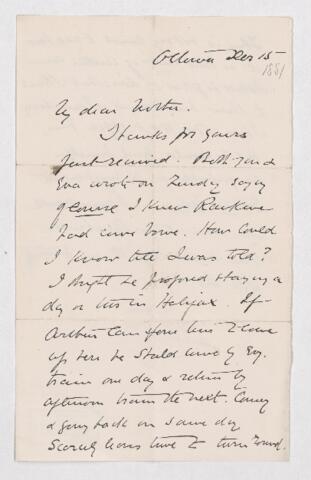 Ottawa Dec 15
1881
My dear Mother.
Thanks for yours
just received. Both you &
Eva wrote on Sunday saying
of course I knew
had come home. How could
I know till I was told?
I thought he proposed staying a
day or two in Halifax. If
Arthur can spare time to come
up here he should come by Evg.
train one day & return by
afternoon train the next. Coming
& going back on same day
scarcely leaves time to turn round.